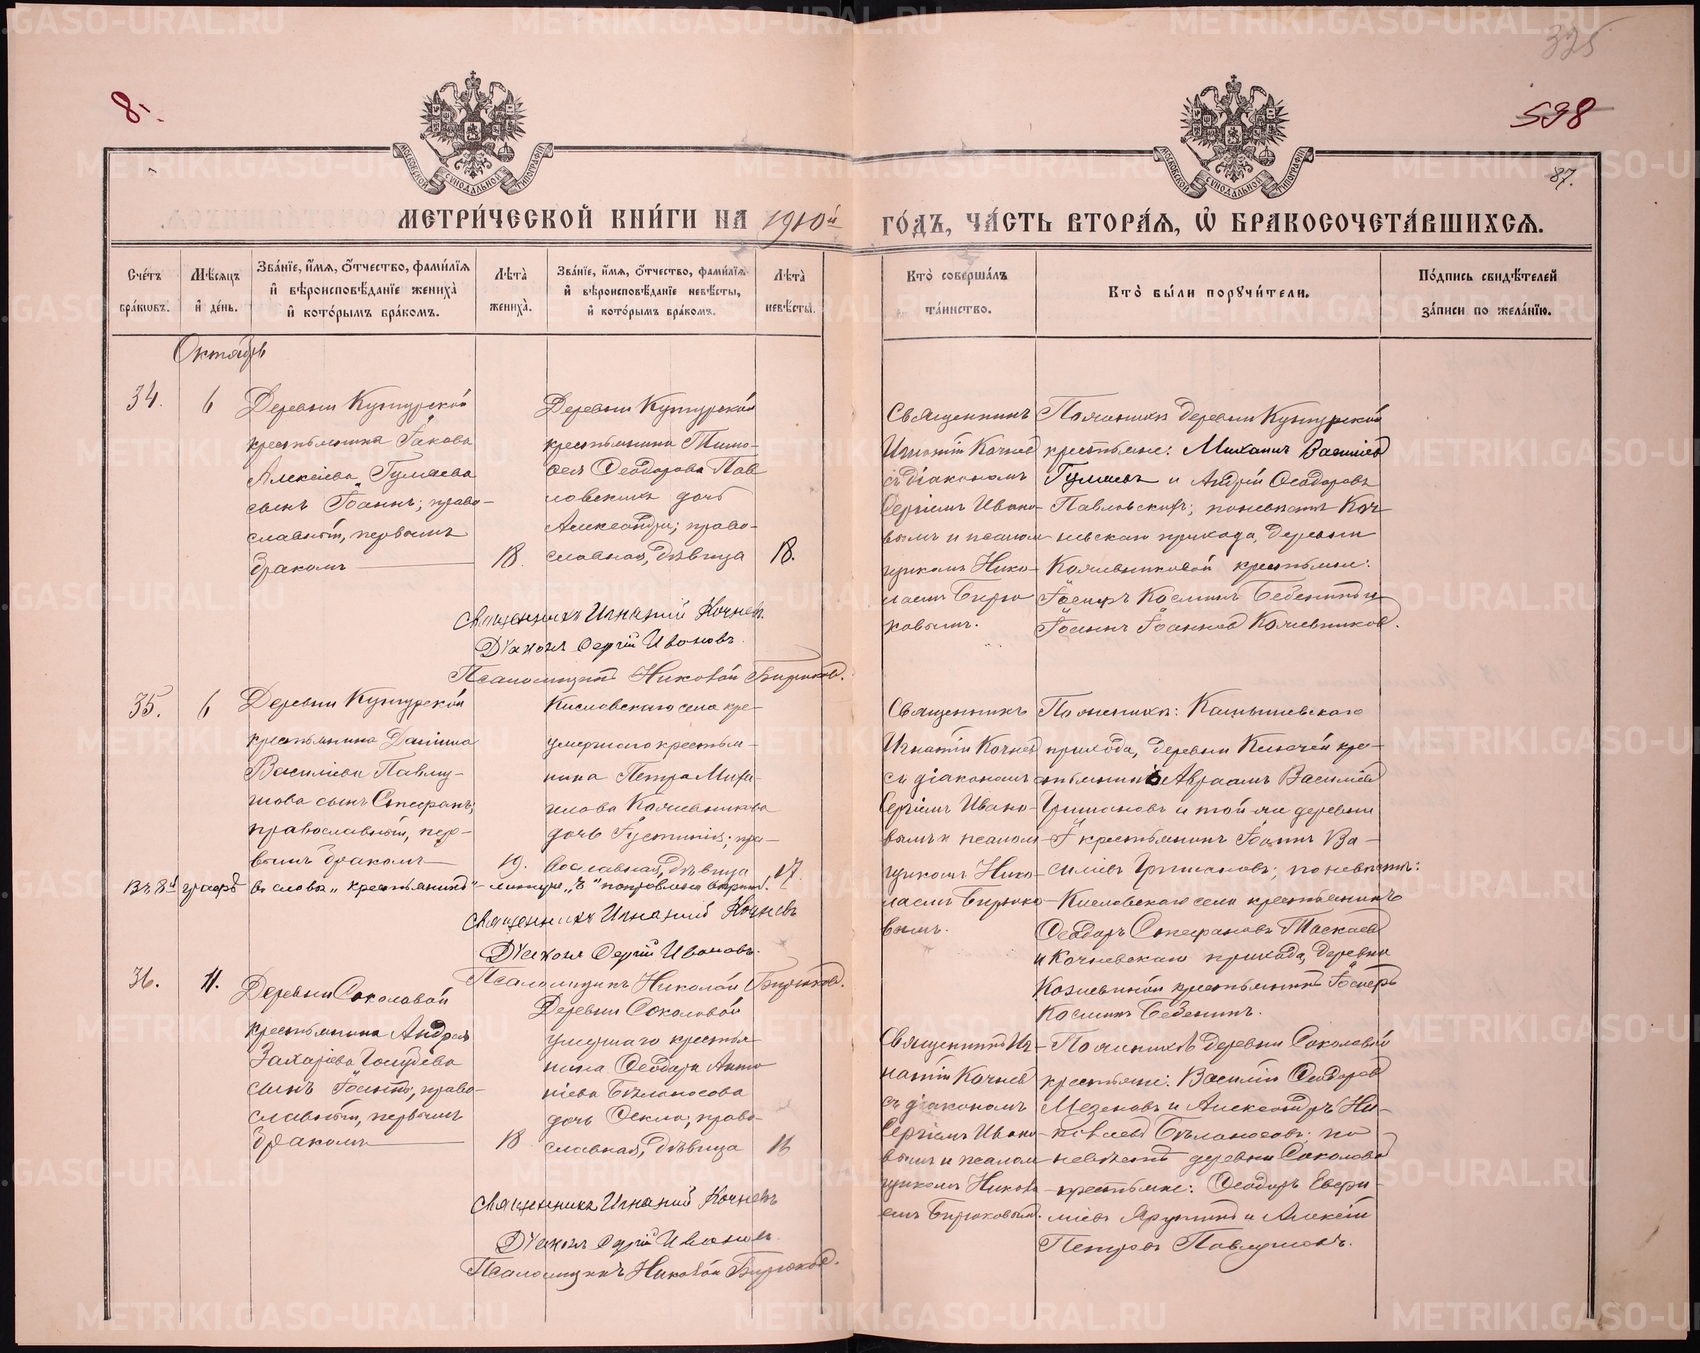 METRIKI.GASO-URAL.RU
325
8.
598
87.
МОСКОВСКОЙ СУНОДАЛЬНОЙ ТИПОГРАФІИ
МОСКОВСКОЙ СУНОДАЛЬНОЙ ТИПОГРАФІИ
МЕТРИ́ЧЕСКОЙ КНИ́ГИ НА 1910й ГО́ДЪ, ЧА́СТЬ ВТОРА́Я, Ѽ БРАКОСОЧЕТА́ВШИХСЯ.
Сче́тъ бра́кѡвъ.
Мѣ́сяцъ и҆ де́нь.
Зва́нїе, и҆́мя, ѻ҆́тчество, фами́лїя и҆ вѣроисповѣ́данїе жениха̀ и҆ кото́рымъ бра́комъ.
Лѣта̀ жениха̀.
Зва́нїе, и҆́мя, ѻ҆́тчество, фами́лїя и҆ вѣроисповѣ́данїе невѣ́сты, и҆ кото́рымъ бра́комъ.
Лѣта̀ невѣ́сты.
Кто̀ соверша́лъ та́инство.
Кто̀ бы́ли порꙋчи́тели.
По́дпись свидѣ́телей за́писи по жела́нїю.
Октябрь
34.
6
Деревни
крестьянина Іакова
Алексѣева Гуляева
сынъ Іоаннъ; право-
славный, первымъ
бракомъ
18.
Деревни
крестьянина Тимо-
ѳея Ѳеодорова Пав
ловскихъ дочь
Александра; право-
славная, дѣвица
18.
Священникъ
Игнатій Кочнев
съ діакономъ
Сергіемъ Ивано-
вымъ и псалом
щикомъ Нико-
лаемъ Бирю
ковымъ.
По женихѣ деревни
крестьяне: Михаилъ Васильев
Гуляевъ и Андрей Ѳеодоровъ
Павловскихъ; по невѣстѣ
прихода, деревни
крестьяне:
Іосифъ Косминъ Бебенинъ и
Іоаннъ Іоанновъ
Священникъ Игнатій Кочневъ.
Діаконъ Сергій Ивановъ.
Псаломщикъ Николай Бирюковъ.
35.
6
Деревни
крестьянина Даніила
Василіева Павлу-
шова сынъ Стефанъ;
православный, пер-
вымъ бракомъ
19.
Кисловскаго села кре-
умершаго крестья-
нина Петра Миха-
илова
дочь Іустинія; пра-
вославная, дѣвица
17.
Въ 8й графѣ въ словѣ „крестьянинъ“ литера „ъ“ поправлена вѣрить.
Священникъ
Игнатій Кочнев
съ діакономъ
Сергіемъ Ивано-
вымъ и псалом-
щикомъ Нико-
лаемъ Бирюко-
вымъ.
По женихѣ: Камышевскаго
прихода, деревни Ключей кре-
стьянинъ Авраамъ Василіев
и той же деревни
крестьянинъ Іоаннъ Ва-
силіевъ по невѣстѣ:
Кисловскаго села крестьянинъ
Ѳеодоръ Стефановъ Таскаевъ
и Кочневскаго прихода, деревни
крестьянинъ Іосифъ
Косминъ Бебенинъ.
Священникъ Игнатій Кочневъ
Діаконъ Сергій Ивановъ.
Псаломщикъ Николай Бирюковъ.
36.
11.
Деревни Соколовой
крестьянина Андрея
Захаріева Голубева
сынъ Іоаннъ, право-
славный, первымъ
бракомъ
18
Деревни Соколовой
умершаго крестья
нина Ѳеодора Анто
ніева Бѣлоносова
дочь Ѳекла, право-
славная, дѣвица
16
Священникъ Иг-
натій Кочнев
съ діакономъ
Сергіемъ Ивано
вымъ и псалом
щикомъ Никола
емъ Бирюковымъ.
По женихѣ деревни Соколовой
крестьяне: Василій Ѳеодоровъ
Мезеновъ и Александръ Ни-
колаевъ Бѣлоносовъ; по
невѣстѣ деревни Соколовой
крестьяне: Ѳеодоръ Евѳи-
міевъ Ярутинъ и Алексѣй
Петровъ Павлушовъ.
Священникъ Игнатій Кочневъ
Діаконъ Сергій Ивановъ.
Псаломщикъ Николай Бирюковъ.